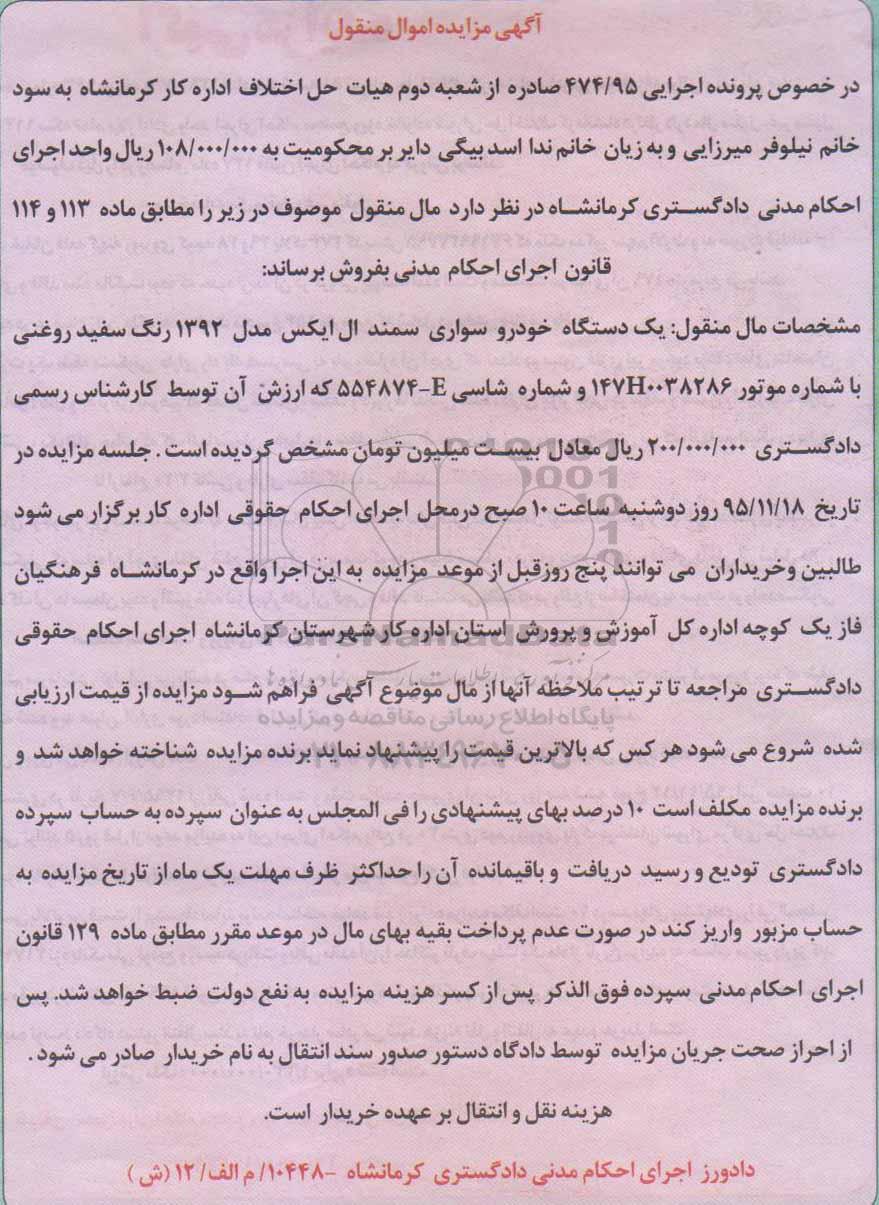 آگهی مزایده اموال منقول
در خصوص پرونده اجرایی ۴۷۴/۹۵ صادره از شعبه دوم هیات حل اختلاف اداره کار کرمانشاه به سود
خانم نیلوفر میرزایی و به زیان خانم ندا اسد بیگی دایر بر محکومیت به ۱۰۸/۰۰۰/۰۰۰ ریال واحد اجرای
احکام مدنی دادگستری کرمانشاه در نظر دارد مال منقول موصوف در زیر را مطابق ماده ۱۱۳ و ۱۱۴
قانون اجرای احکام مدنی بفروش برساند:
مشخصات مال منقول: یک دستگاه خودرو سواری سمند ال ایکس مدل ۱۳۹۲ رنگ سفید روغنی
با شماره موتور ۱۴۷H۰۰۳۸۲۸۶ و شماره شاسی E-۵۵۴۸۷۴ که ارزش آن توسط کارشناس رسمی
دادگستری ۲۰۰/۰۰۰/۰۰۰ ریال معادل بیست میلیون تومان مشخص گردیده است . جلسه مزایده در
تاریخ ۹۵/۱۱/۱۸ روز دوشنبه ساعت ۱۰ صبح درمحل اجرای احکام حقوقی اداره کار برگزار می شود
طالبین وخریداران می توانند پنج روزقبل از موعد مزایده به این اجرا واقع در کرمانشاه فرهنگیان
فاز یک کوچه اداره کل آموزش و پرورش استان اداره کار شهرستان کرمانشاه اجرای احکام حقوقی
دادگستری مراجعه تا ترتیب ملاحظه آنها از مال موضوع آگهی فراهم شود مزایده از قیمت ارزیابی
شده شروع می شود هر کس که بالاترین قیمت را پیشنهاد نماید برنده مزایده شناخته خواهد شد و
برنده مزایده مکلف است ۱۰ درصد بهای پیشنهادی را فی المجلس به عنوان سپرده به حساب سپرده
دادگستری تودیع و رسید دریافت و باقیمانده آن را حداکثر ظرف مهلت یک ماه از تاریخ مزایده به
حساب مزبور واریز کند در صورت عدم پرداخت بقیه بهای مال در موعد مقرر مطابق ماده ۱۲۹ قانون
اجرای احکام مدنی سپرده فوق الذکر پس از کسر هزینه مزایده به نفع دولت ضبط خواهد شد. پس
از احراز صحت جریان مزایده توسط دادگاه دستور صدور سند انتقال به نام خریدار صادر می شود .
هزینه نقل و انتقال بر عهده خریدار است.
دادورز اجرای احکام مدنی دادگستری کرمانشاه -۱۰۴۴۸/ م الف/ ۱۲ (ش )
ParsNamadData